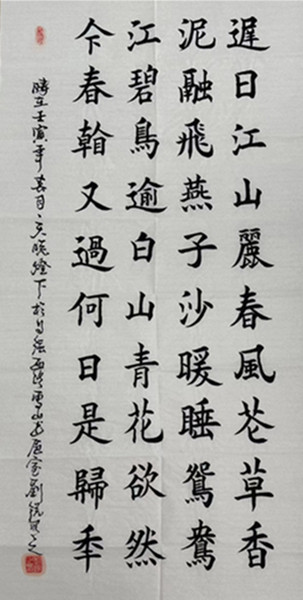 遲日江山麗春風花草香
泥融飛燕子沙暖睡鴛鴦
江碧鳥逾白山青花欲然
今春看又過何日是歸秊
時在壬寅年 晚燈下於 劉